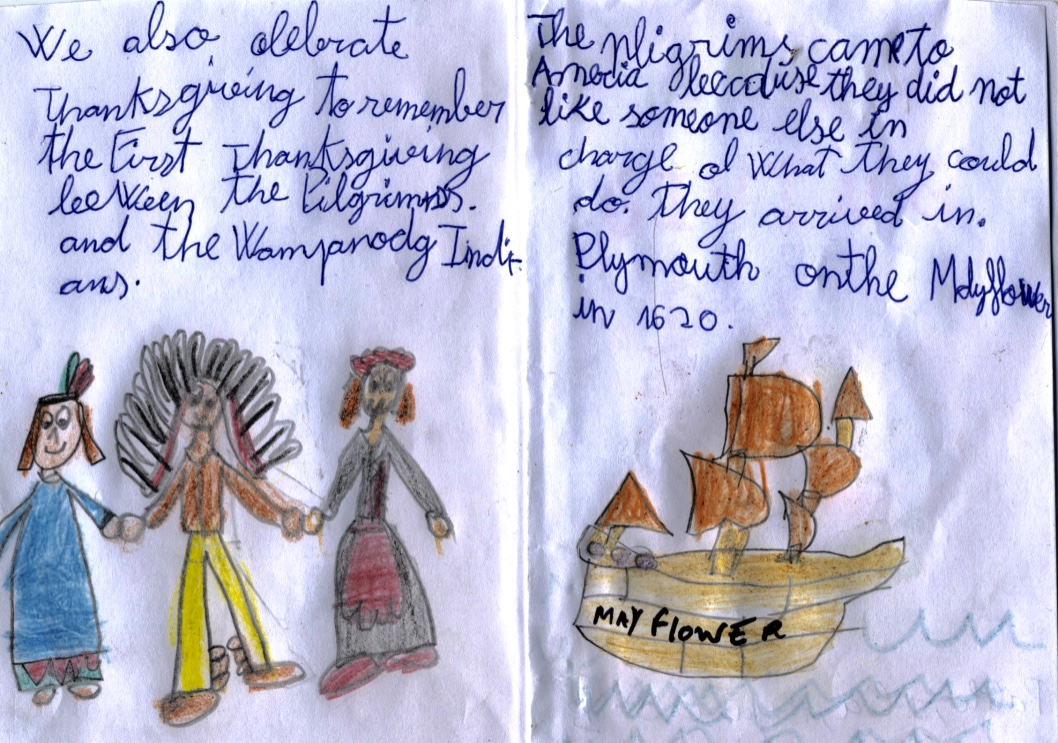 We also olebrate
Thanksgiving to remember
the First Thanksgiving
beeween the Pilgrimms.
and the Wampanodg Indi-
ans.
The pligrims came to
Amecia beecduse they did not
like someone else in
charge of what they could
do. They arrived in.
Plymouth onthe Mdyflower
in 1620.
MAYFLOWER